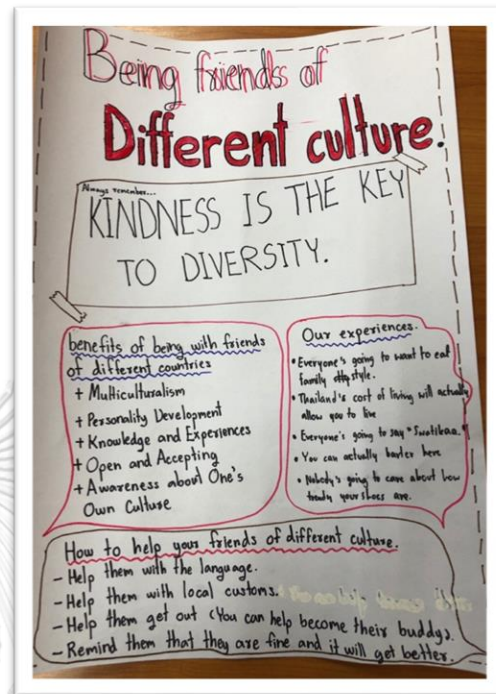 Being friends of
Different culture.
Always remember...
KINDNESS IS THE KEY
TO DIVERSITY.
benefits of being with friends
of different countries
+ Multiculturalism
+ Personality Development
+ Knowledge and Experiences
+ Open and Accepting
+ Awareness about One's
Own Culture
Our experiences.
• Everyone's going to want to eat
family style.
• Thailand's cost of living will actually
allow you to live
• Everyone's going to say "Swatikaa."
• You can actually barter here
• Nobody's going to care about how
trendy your shoes are.
How to help your friends of different culture.
- Help them with the language.
- Help them with local customs.
- Help them get out (You can help become their buddy).
- Remind them that they are fine and it will get better.